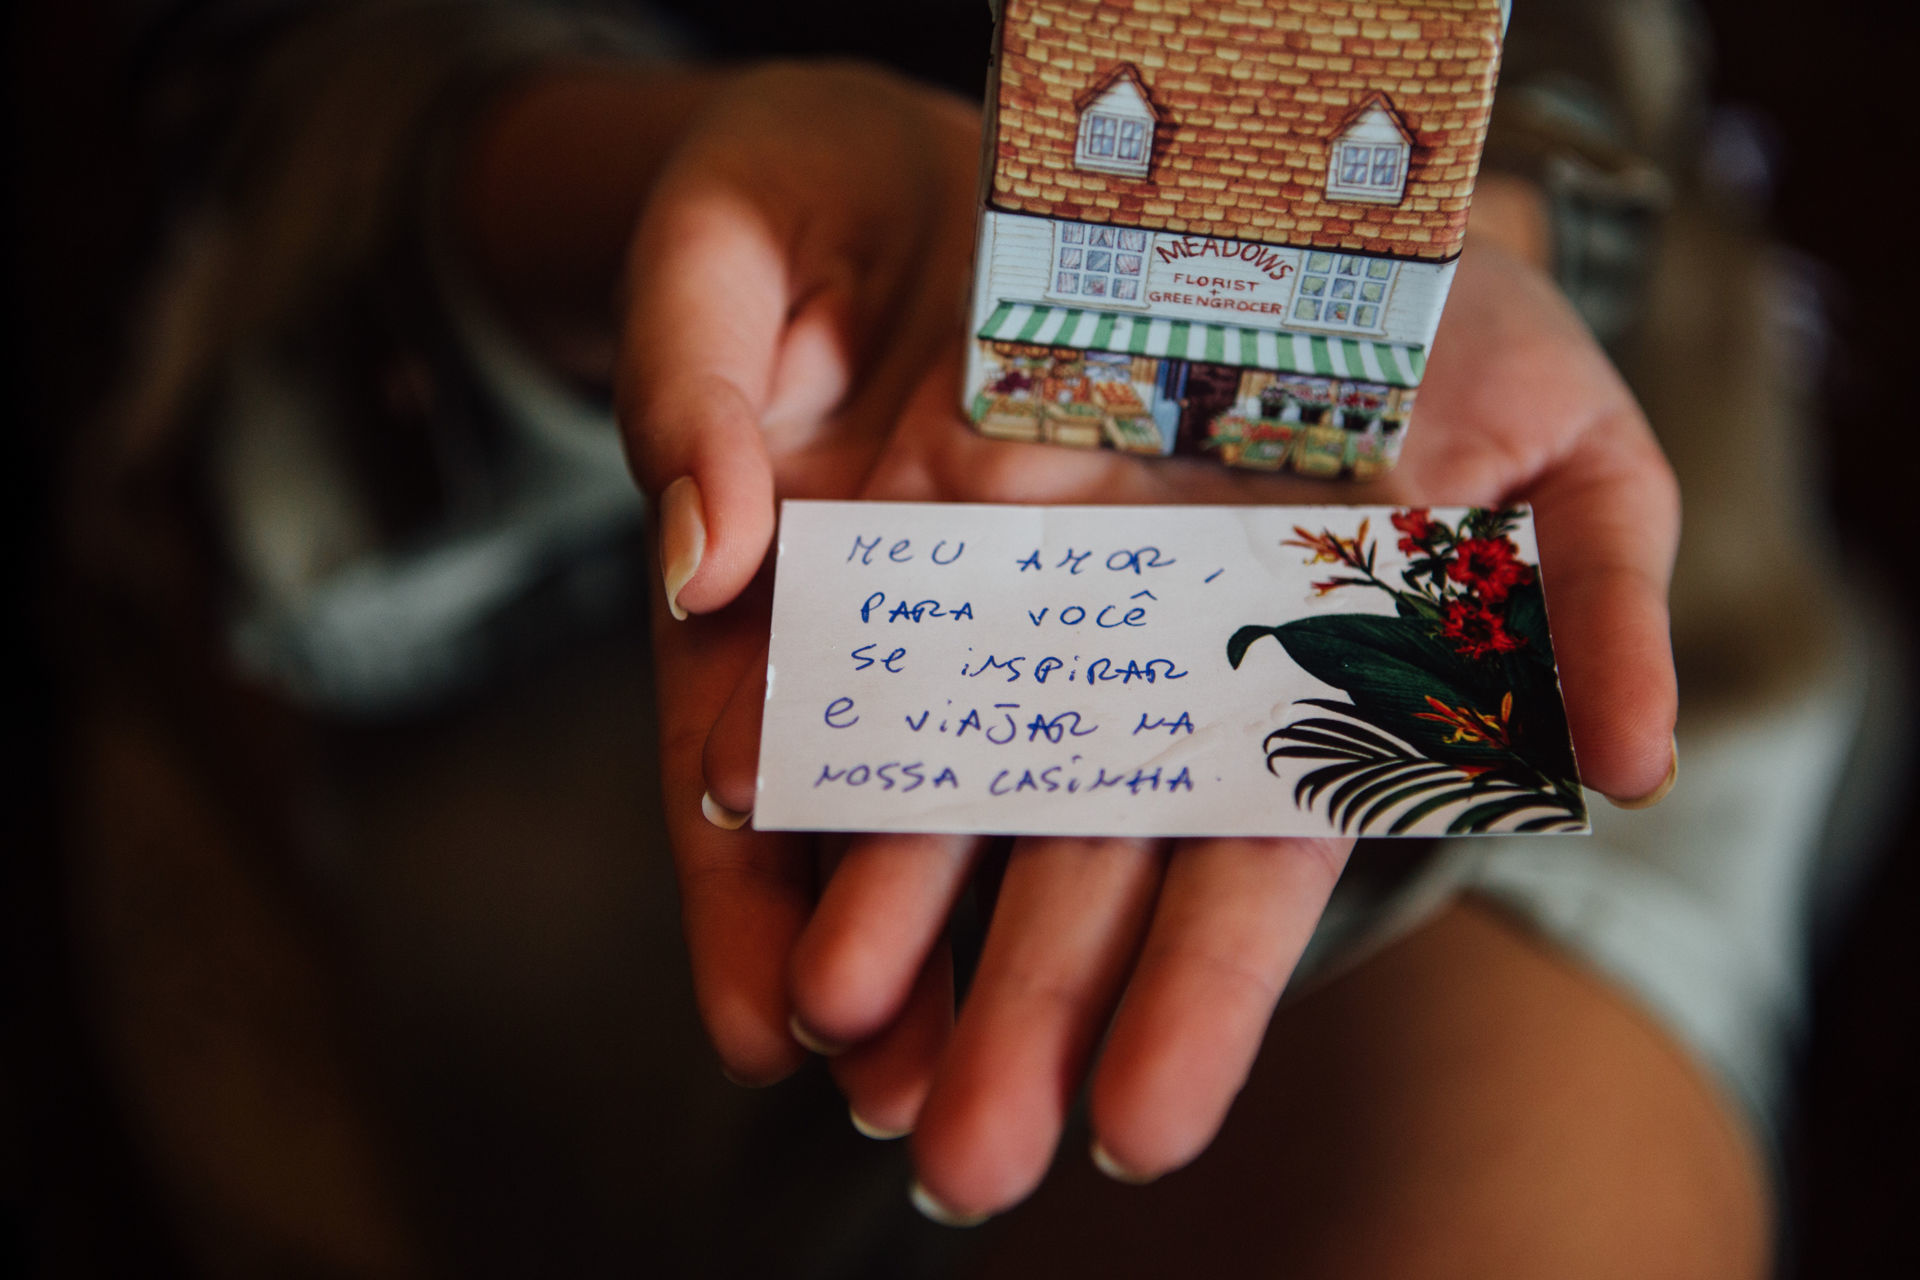 MEADOWS
FLORIST
+
GREENGROCER
MeU AMOR,
PARA VOCÊ
Se iNSPiRAR
e ViAJAR NA
NOSSA CASiNHA.